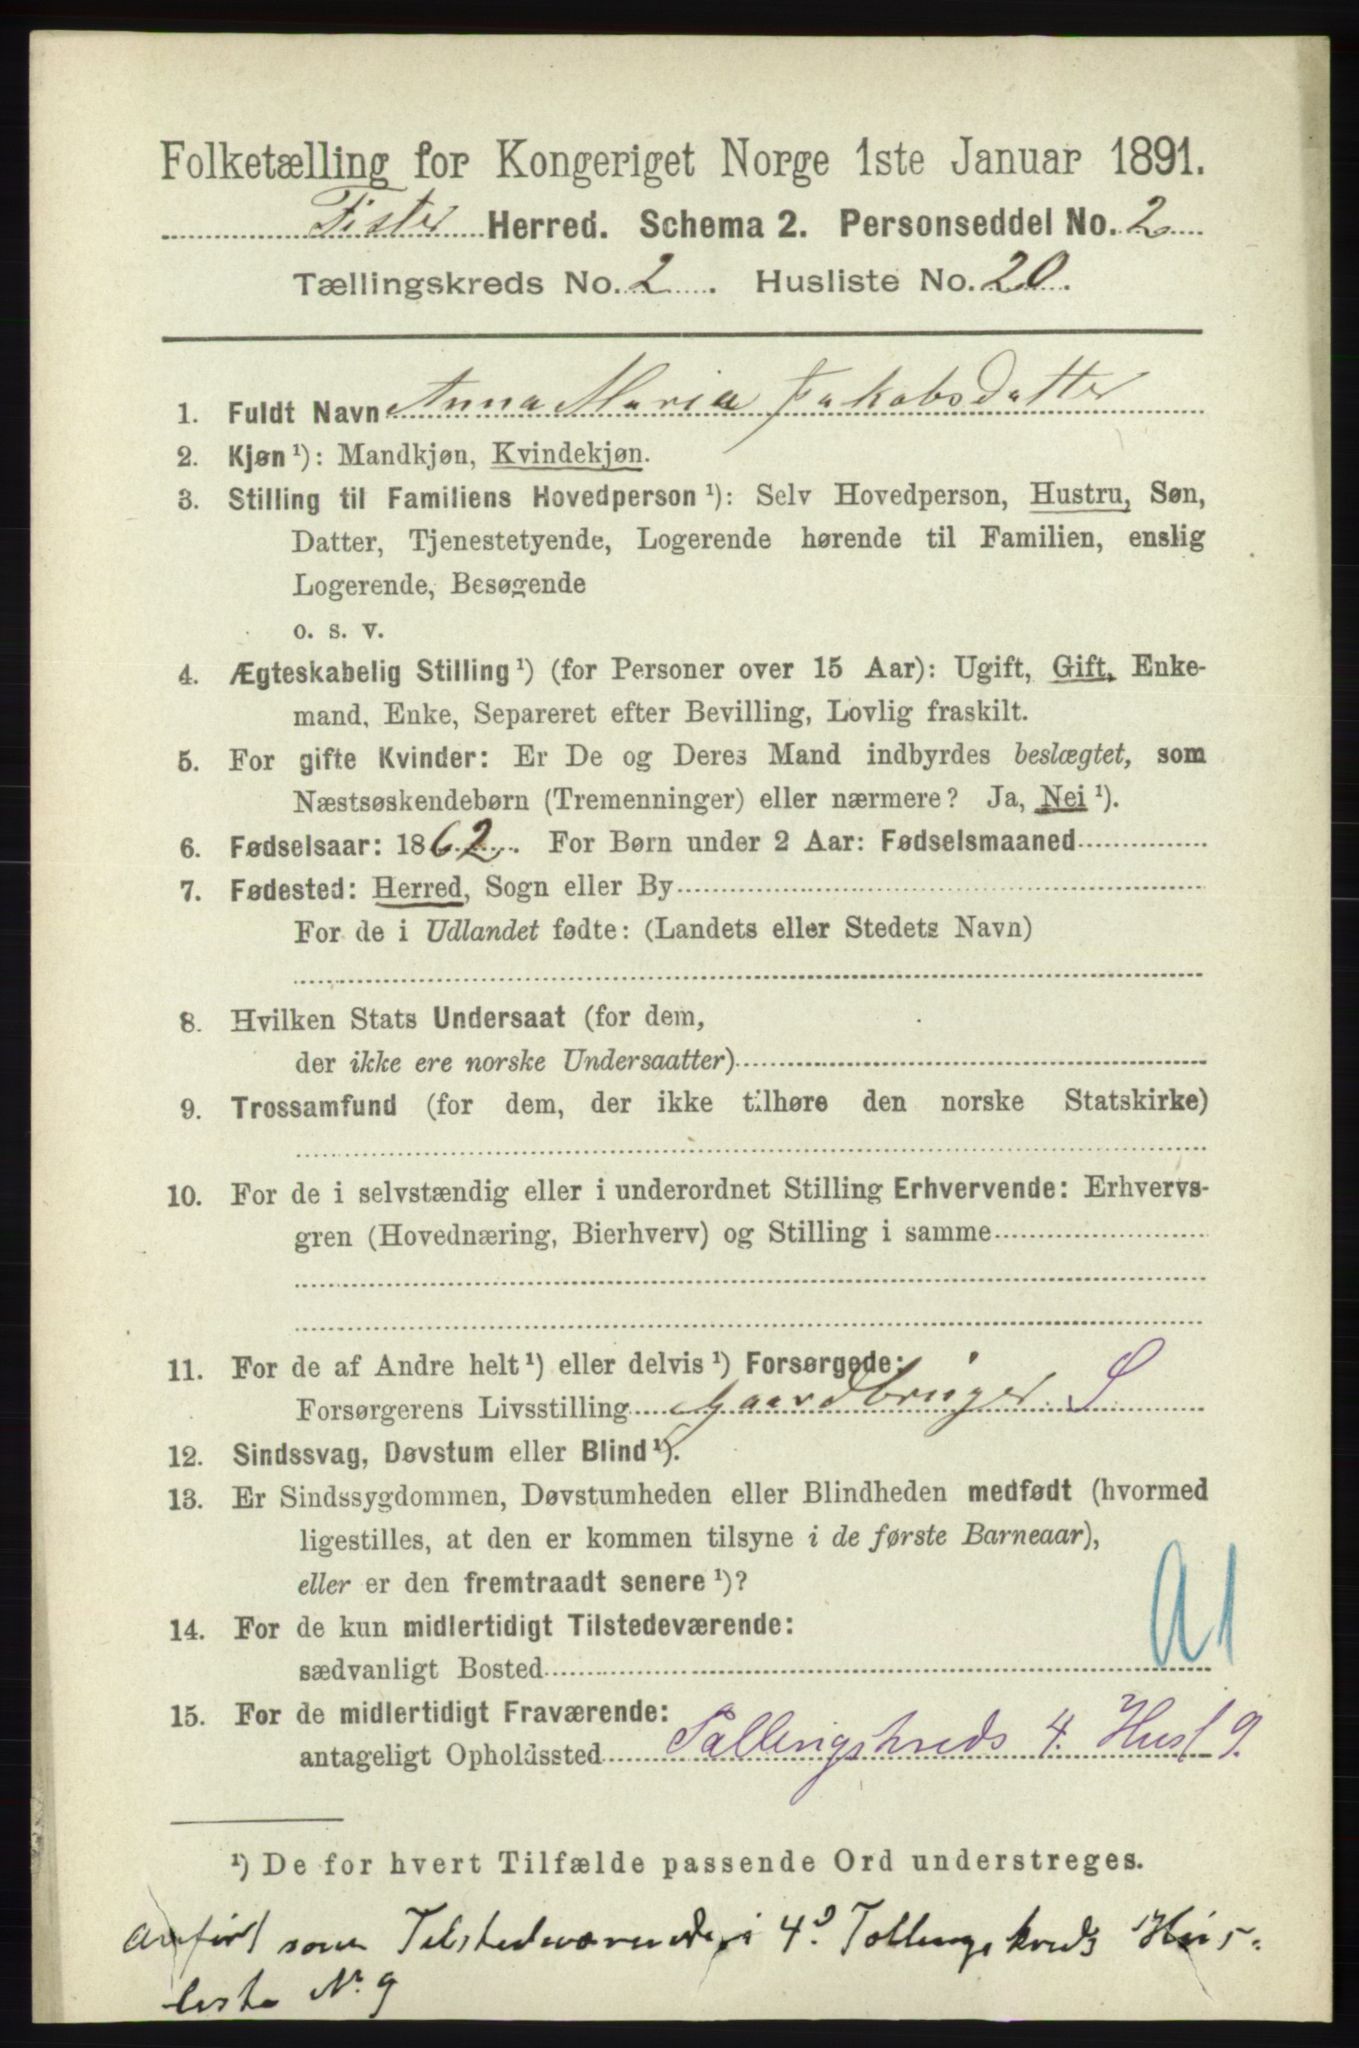 Folketælling for Kongeriget Norge 1ste Januar 1891.
Fister Herred. Schema 2. Personseddel No. 2
Tællingskreds No. 2. Husliste No. 20.
1. Fuldt Navn Anna Maria Jakobsdatter
2. Kjøn ¹): Mandkjøn, Kvindekjøn.
3. Stilling til Familiens Hovedperson ¹): Selv Hovedperson, Hustru, Søn,
Datter, Tjenestetyende, Logerende hørende til Familien, enslig
Logerende, Besøgende
o. s. v.
4. Ægteskabelig Stilling ¹) (for Personer over 15 Aar): Ugift, Gift, Enke-
mand, Enke, Separeret efter Bevilling, Lovlig fraskilt.
5. For gifte Kvinder: Er De og Deres Mand indbyrdes beslægtet, som
Næstsøskendebørn (Tremenninger) eller nærmere? Ja, Nei ¹).
6. Fødselsaar: 1862. For Børn under 2 Aar: Fødselsmaaned
7. Fødested: Herred, Sogn eller By
For de i Udlandet fødte: (Landets eller Stedets Navn)
8. Hvilken Stats Undersaat (for dem,
der ikke ere norske Undersaatter)
9. Trossamfund (for dem, der ikke tilhøre den norske Statskirke)
10. For de i selvstændig eller i underordnet Stilling Erhvervende: Erhvervs-
gren (Hovednæring, Bierhverv) og Stilling i samme
11. For de af Andre helt ¹) eller delvis ¹) Forsørgede:
Forsørgerens Livsstilling Gaardbruger S
12. Sindssvag, Døvstum eller Blind ¹).
13. Er Sindssygdommen, Døvstumheden eller Blindheden medfødt (hvormed
ligestilles, at den er kommen tilsyne i de første Barneaar),
eller er den fremtraadt senere ¹)?
14. For de kun midlertidigt Tilstedeværende:
sædvanligt Bosted
a1
15. For de midlertidigt Fraværende:
antageligt Opholdssted Tællingskreds 4. Husl 9.
¹) De for hvert Tilfælde passende Ord understreges.
anført som Tilstedeværende i 4d Tællingskreds Hus-
liste Nr 9